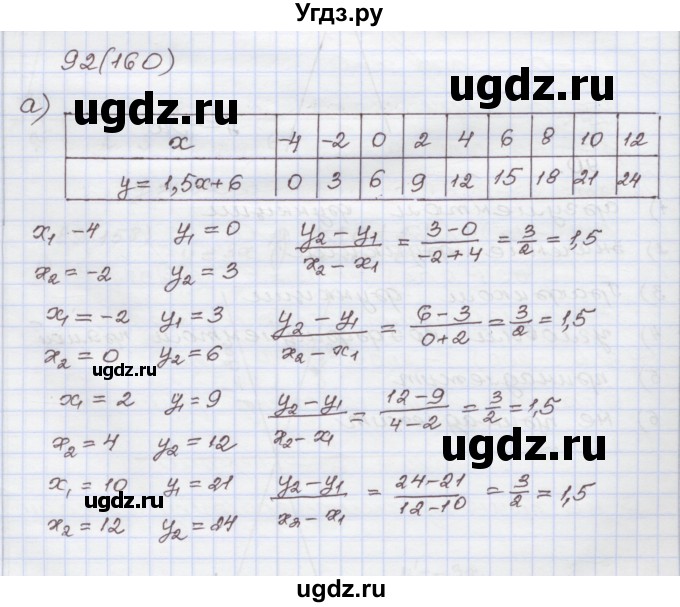 Угдз.ру
92(160)
ugdz.ru ugdz.ru
а)
x -4 -2 0 2 4 6 8 10 12
y = 1,5x+6 0 3 6 9 12 15 18 21 24
x₁ -4 y₁ = 0 (y₂ - y₁)/(x₂ - x₁) = (3-0)/(-2+4) = 3/2 = 1,5
x₂ = -2 y₂ = 3
x₁ = -2 y₁ = 3 (y₂ - y₁)/(x₂ - x₁) = (6-3)/(0+2) = 3/2 = 1,5
x₂ = 0 y₂ = 6
ugdz.ru ugdz.ru
x₁ = 2 y₁ = 9 (y₂ - y₁)/(x₂ - x₁) = (12-9)/(4-2) = 3/2 = 1,5
x₂ = 4 y₂ = 12
x₁ = 10 y₁ = 21 (y₂ - y₁)/(x₂ - x₁) = (24-21)/(12-10) = 3/2 = 1,5
x₂ = 12 y₂ = 24
ugdz.ru ugdz.ru
ugdz.ru